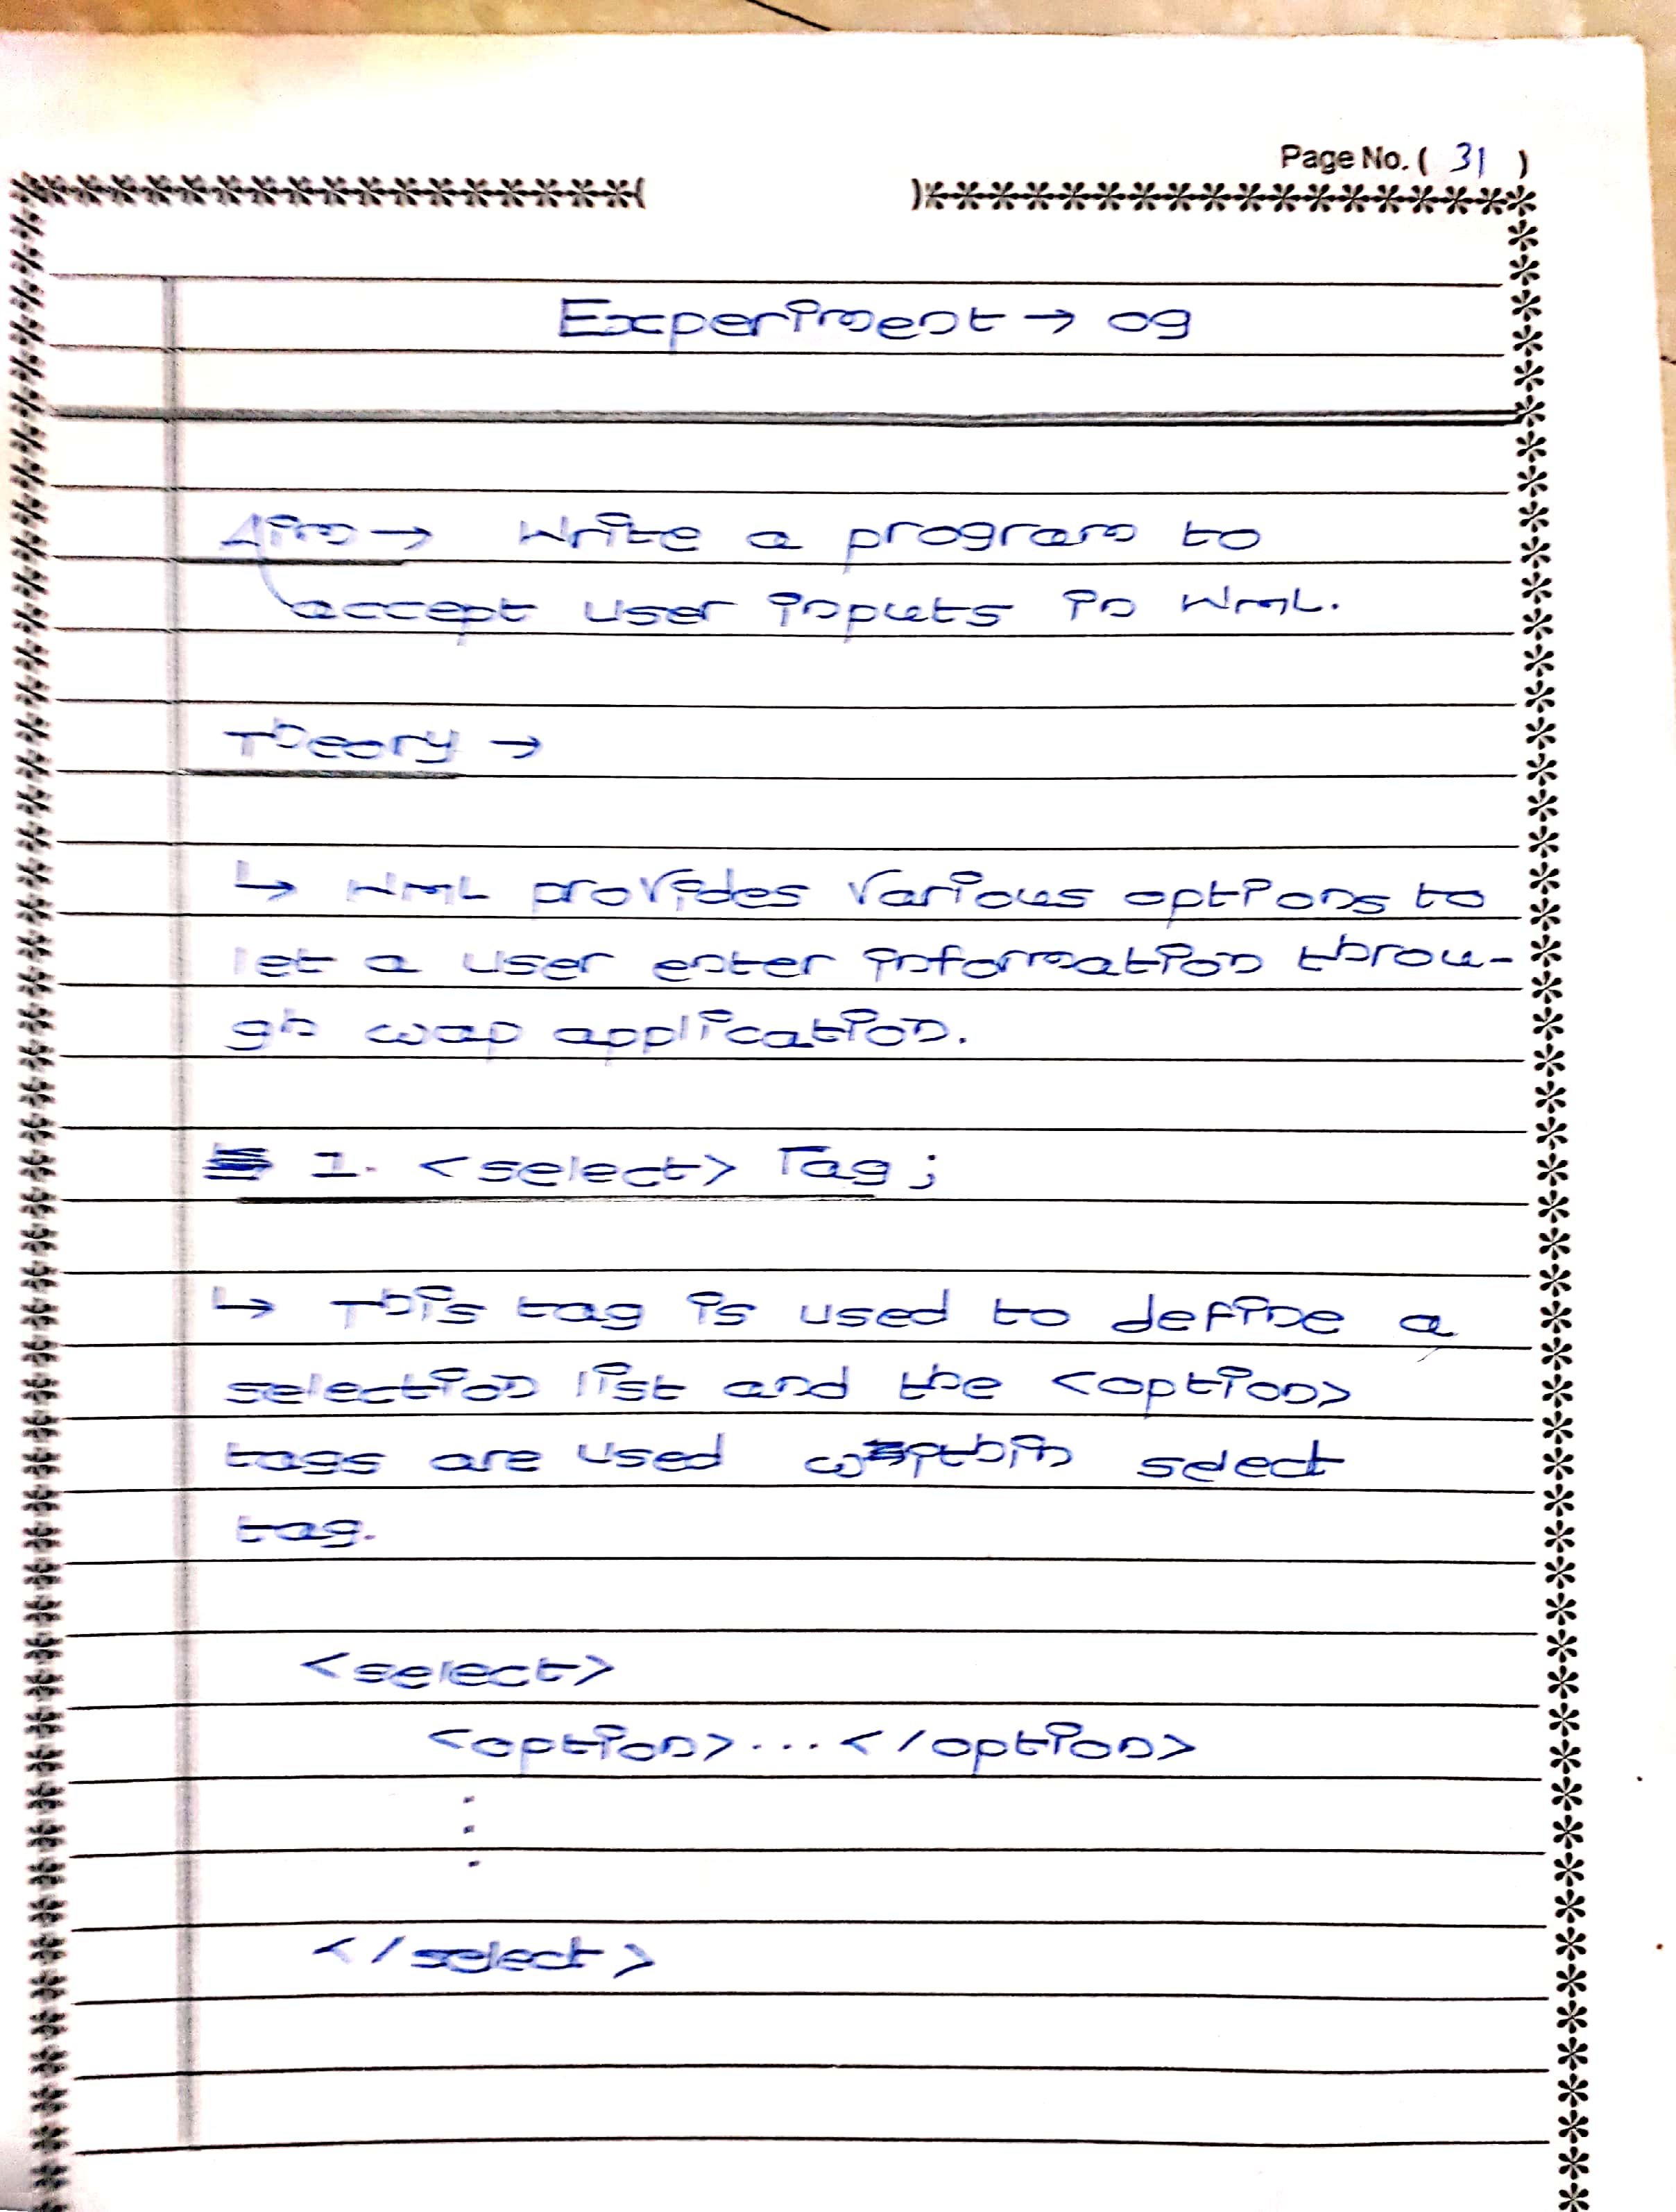 Page No. ( 31 )
Experiment → 09
Aim → Write a program to
accept user inputs in WML.
Theory →
↳ WML provides various options to
let a user enter information throu-
gh wap application.
1. <select> Tag ;
↳ This tag is used to define a
selection list and the <option>
tags are used within select
tag.
<select>
<option>...</option>
.
.
.
</select>